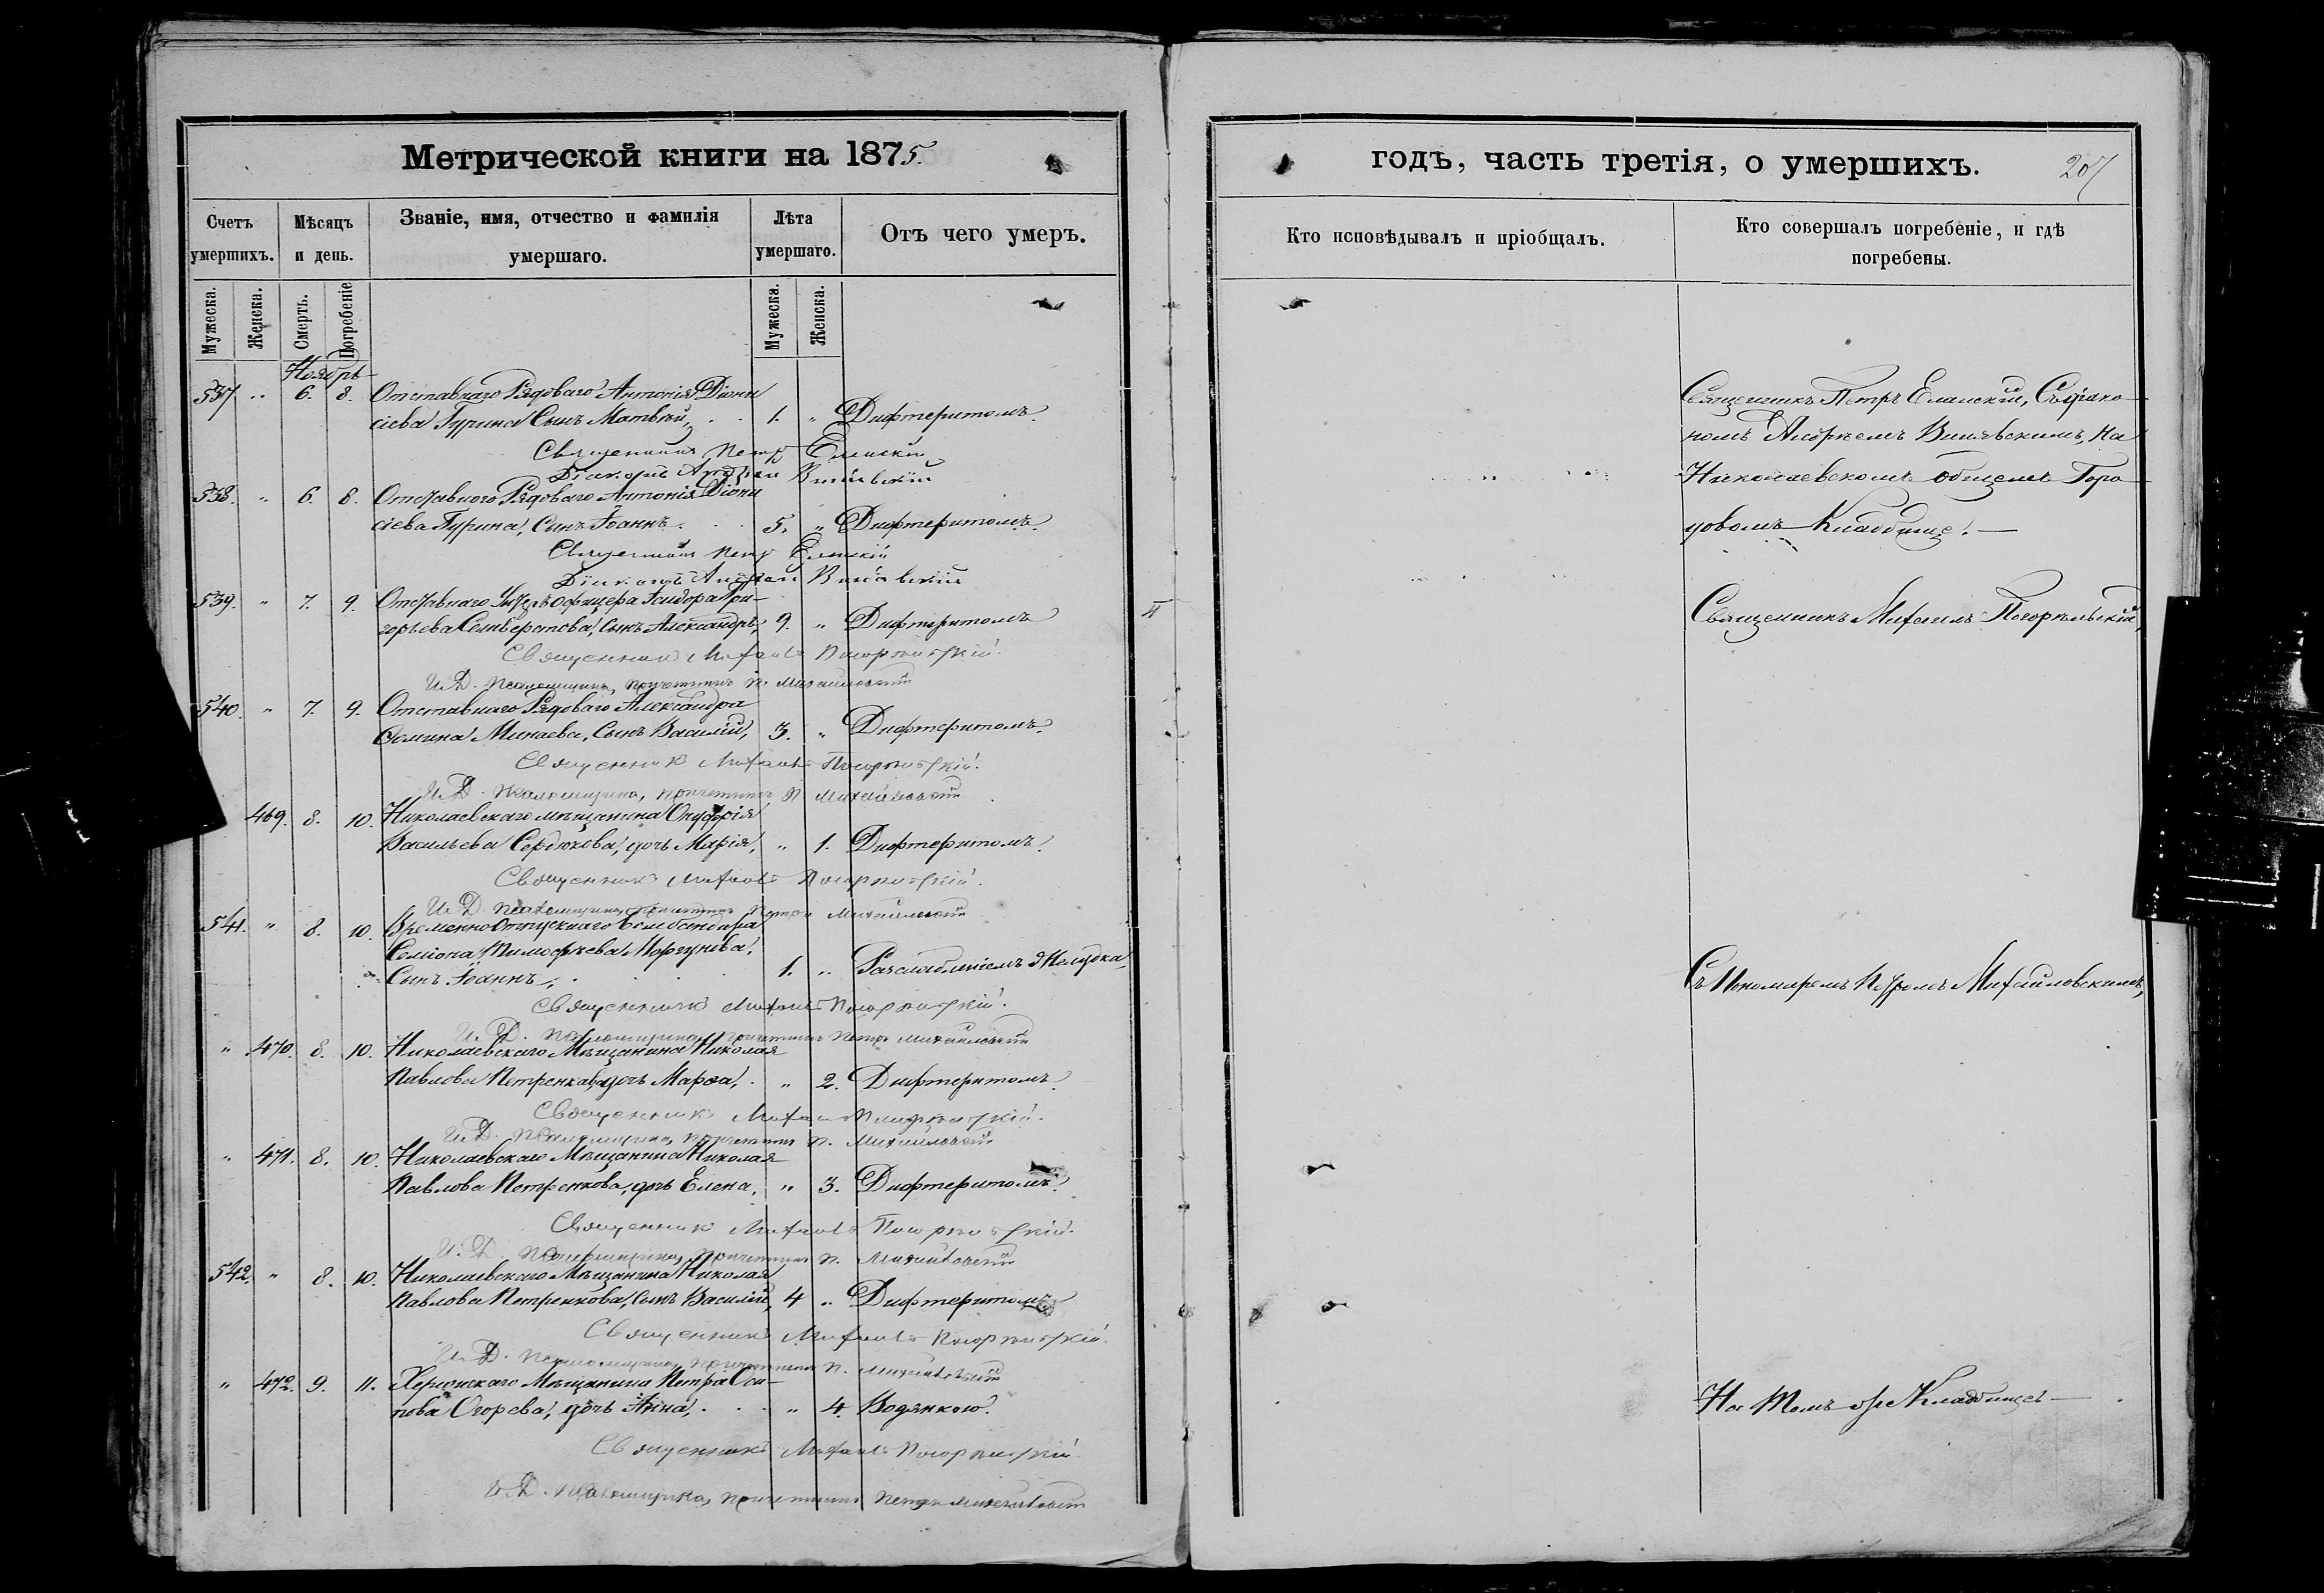 Метрической книги на 1875.
Счетъ умершихъ.
Мѣсяцъ и день.
Званіе, имя, отчество и фамилія умершаго.
Лѣта умершаго.
Отъ чего умеръ.
Мужеска.
Женска.
Смерть.
Погребеніе
Мужеска.
Женска.
Ноябрь
537. " 6. 8. Отставнаго Рядоваго Антонія Діони
сіева Гурина, Сынъ Матвѣй, 1. " Дифтеритомъ.
Священникъ Петръ Еланскій
Діаконъ Андрей
538. " 6. 8. Отставного Рядоваго Антонія Діони
сіева Гурина, Сынъ Іоаннъ. 5. " Дифтеритомъ.
Священникъ Петръ Еланскій
Діаконъ Андрей
539. " 7. 9. Отставнаго Унтеръ офицера Исидора Гри-
горьева Селиверстова, Сынъ Александръ, 9. " Дифтеритомъ
Священникъ Михаилъ Погорѣльскій.
И. Д. Псаломщика, причетникъ П. Михайловскій
540. " 7. 9. Отставнаго Рядоваго Александра
Фомина Минаева, Сынъ Василій, 3. " Дифтеритомъ.
Священникъ Михаилъ Погорѣльскій.
И. Д. Псаломщика, причетникъ П. Михайловскій
469. 8. 10. Николаевскаго мѣщанина Онуфрія
Васильева Сердюкова, дочь Марія, " 1. Дифтеритомъ.
Священникъ Михаилъ Погорѣльскій.
И. Д. Псаломщика, причетникъ Петръ Михайловскій
541. " 8. 10. Временно отпускнаго
Семіона Тимофѣева Моргунова,
Сынъ Іоаннъ, 1. " Разслабленіемъ Желудка,
Священникъ Михаилъ Погорѣльскій.
И. Д. Псаломщика, причетникъ Петръ Михайловскій
" 470. 8. 10. Николаевскаго Мѣщанина Николая
Павлова Петренкова, дочь Марѳа, " 2. Дифтеритомъ.
Священникъ Михаилъ Погорѣльскій.
И. Д. Псаломщика, причетникъ П. Михайловскій
" 471. 8. 10. Николаевскаго Мѣщанина Николая
Павлова Петренкова, дочь Елена, " 3. Дифтеритомъ.
Священникъ Михаилъ Погорѣльскій.
И. Д. Псаломщика, причетникъ П. Михайловскій
542. " 8. 10. Николаевскаго Мѣщанина Николая
Павлова Петренкова, Сынъ Василій, 4 " Дифтеритомъ
Священникъ Михаилъ Погорѣльскій.
И. Д. Псаломщика, причетникъ П. Михайловскій
" 472. 9. 11. Херсонскаго Мѣщанина Петра Оси-
пова Огорева, дочь Анна, " 4. Водянкою.
Священникъ Михаилъ Погорѣльскій
И. Д. Псаломщика, причетникъ Петръ Михайловскій
годъ, часть третія, о умершихъ.
207
Кто исповѣдывалъ и пріобщалъ.
Кто совершалъ погребеніе, и гдѣ погребены.
Священникъ Петръ Еланскій, Съ діако-
номъ Андреемъ на
Николаевскомъ общемъ Горо-
довомъ Кладбище. —
Священникъ Михаилъ Погорѣльскій,
Съ Пономаремъ Петромъ Михайловскимъ,
На томъ же Кладбище —